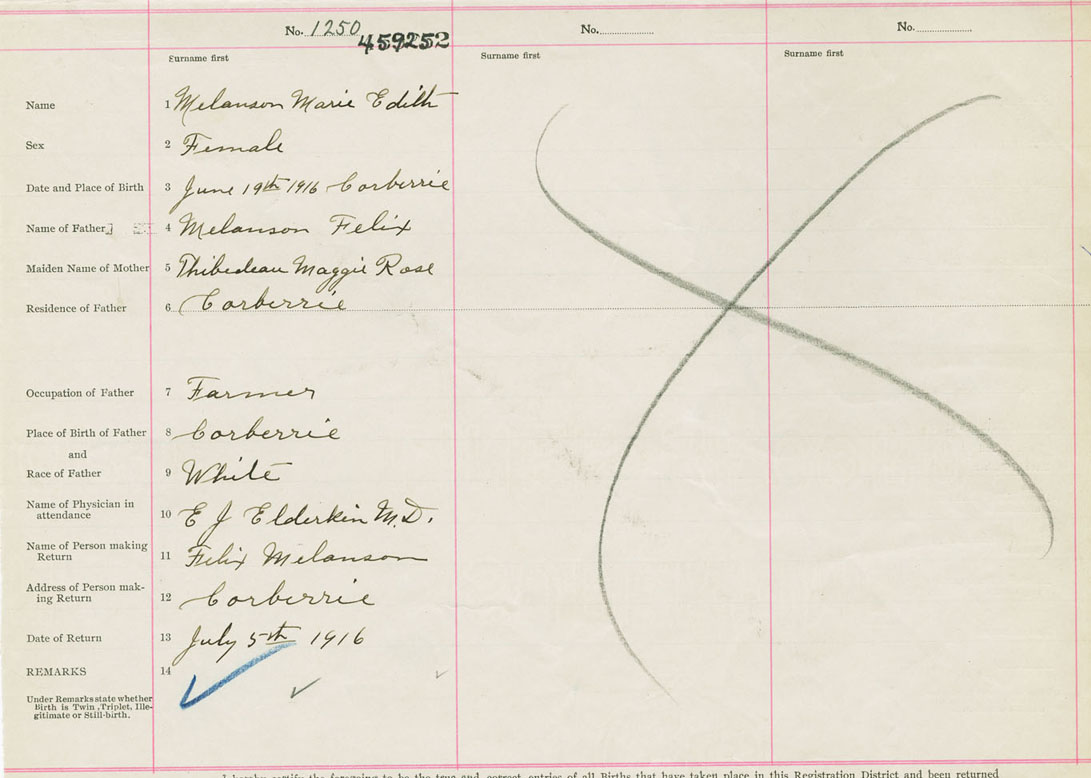 No. 1250 No. No.
459252
Surname first Surname first Surname first
Name 1 Melanson Marie Edith
Sex 2 Female
Date and Place of Birth 3 June 19th 1916 Corberrie
Name of Father 4 Melanson Felix
Maiden Name of Mother 5 Thibedeau Maggie Rose
Residence of Father 6 Corberrie
Occupation of Father 7 Farmer
Place of Birth of Father 8 Corberrie
and
Race of Father 9 White
Name of Physician in
attendance 10 E J Elderkin M.D.
Name of Person making
Return 11 Felix Melanson
Address of Person mak-
ing Return 12 Corberrie
Date of Return 13 July 5th 1916
REMARKS 14
Under Remarks state whether
Birth is Twin, Triplet, Ille-
gitimate or Still-birth.
I hereby certify the foregoing to be the true and correct entries of all Births that have taken place in this Registration District and been returned